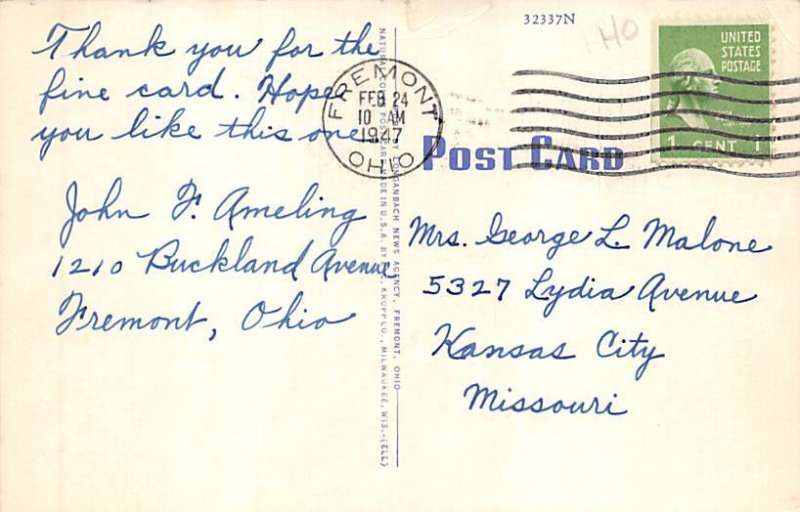 32337N
HO
UNITED
STATES
POSTAGE
1 CENT 1
FREMONT
FEB 24
10 AM
1947
OHIO
POST CARD
Thank you for the
fine card. Hope
you like this one.
John F. Ameling
1210 Buckland Avenue
Fremont, Ohio
Mrs. George L. Malone
5327 Lydia Avenue
Kansas City
Missouri
BY LONGANBACH NEWS AGENCY, FREMONT, OHIO
MADE IN U.S.A. BY E.C. KROPP CO., MILWAUKEE, WIS.-(ELL)